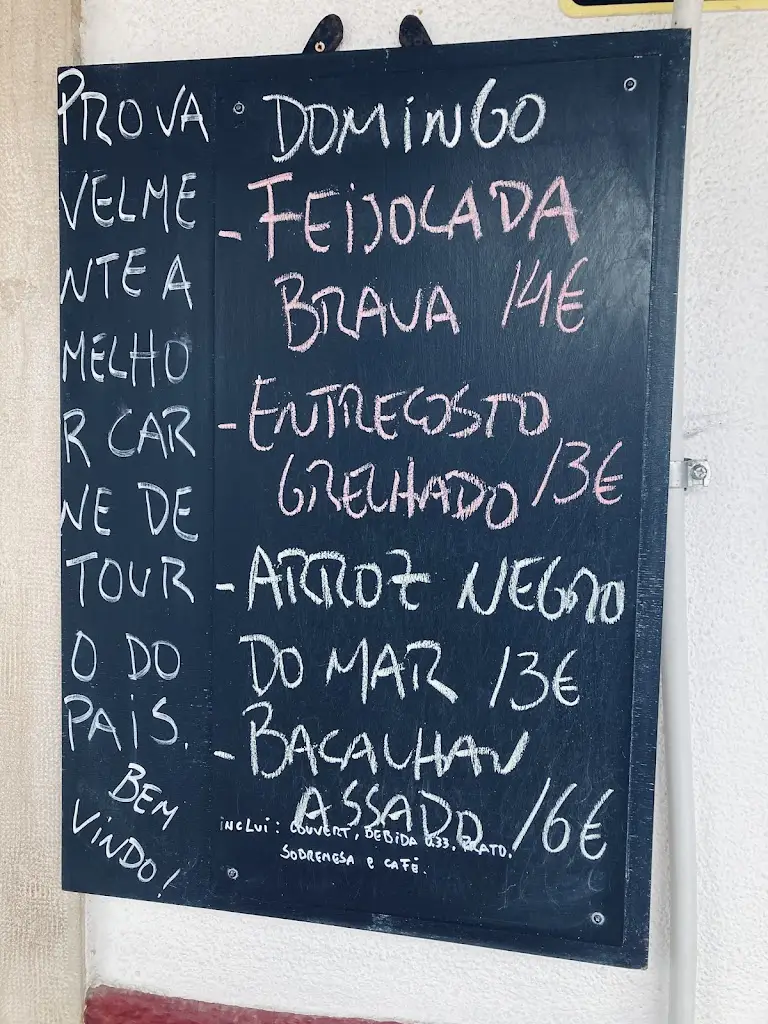 PROVA
VELME
NTE A
MELHO
R CAR
NE DE
TOUR
O DO
PAÍS.
BEM
VINDO!
DOMINGO
- FEIJOCADA
BRAVA 14€
- ENTRECOSTO
GRELHADO 13€
- ARROZ NEGRO
DO MAR 13€
- BACALHAU
ASSADO 16€
INCLUI: COUVERT, BEBIDA 0.33, PRATO,
SOBREMESA e CAFÉ.